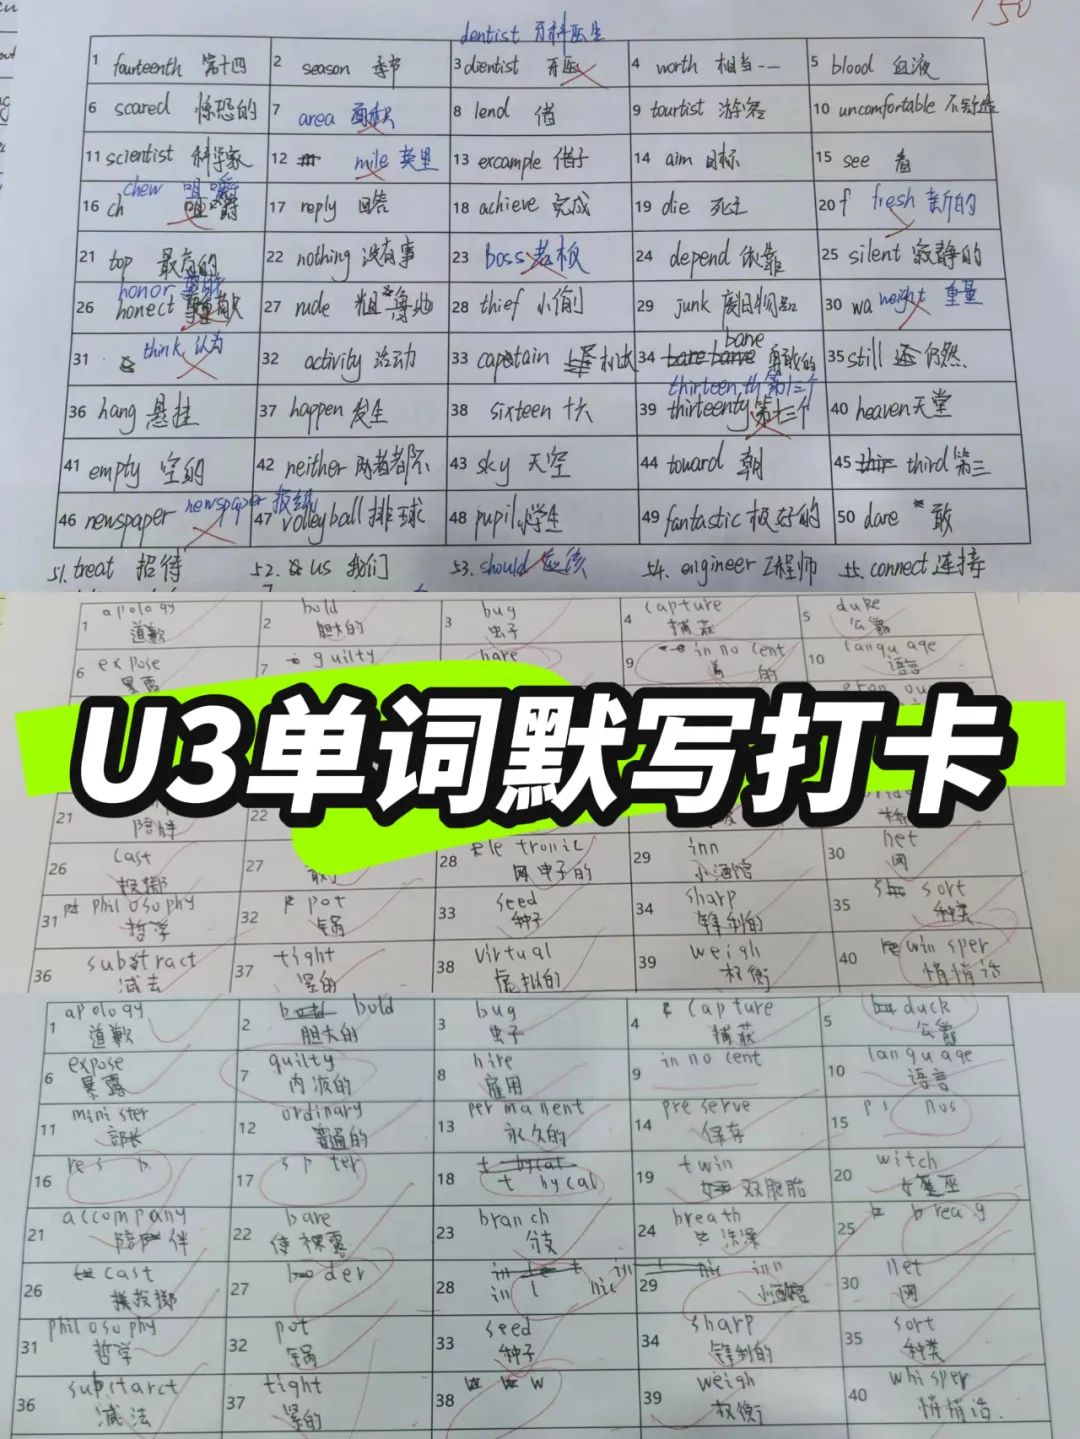 150
dentist 牙科医生
1 fourteenth 第十四 2 season 季节 3 dientist 牙医 4 worth 相当一一 5 blood 血液
6 scared 惊恐的 7 area 面积 8 lend 借 9 tourtist 游客 10 uncomfortable 不舒适
11 scientist 科学家 12 mile 英里 13 excample 借子 14 aim 目标 15 see 看
chew 咀嚼
16 ch 咀嚼 17 reply 回答 18 achieve 完成 19 die 死亡 20 f fresh 新的
21 top 最高的 22 nothing 没有事 23 boss 老板 24 depend 依靠 25 silent 寂静的
honor
26 honect 27 rude 粗鲁地 28 thief 小偷 29 junk 废旧物品 30 wa weight 重量
think 认为
31 32 activity 活动 33 capetain 机长 34 bane 勇敢的 35 still 还 仍然
thirteenth 第十三个
36 hang 悬挂 37 happen 发生 38 sixteen 十六 39 thirteenty 第十三个 40 heaven 天堂
41 empty 空的 42 neither 两者都不 43 sky 天空 44 toward 朝 45 third 第三
46 newspaper newspaper 报纸 47 volleyball 排球 48 pupil 小学生 49 fantastic 极好的 50 dare 敢
51. treat 招待 52. us 我们 53. should 应该 54. engineer 工程师 55. connect 连接
1 apology 道歉 2 bold 胆大的 3 bug 虫子 4 capture 捕获 5 duke 公爵
6 expose 暴露 7 guilty hare 9 innocent 的 10 language 语言
U3单词默写打卡
21 陪伴 22
26 cast 投掷 27 28 eletronic 电子的 29 inn 小酒馆 30 net 网
31 philosophy 哲学 32 pot 锅 33 seed 种子 34 sharp 锋利的 35 sort 种类
36 substract 减去 37 tight 紧的 38 virtual 虚拟的 39 weigh 权衡 40 winsper 悄悄话
1 apology 道歉 2 bold 胆大的 3 bug 虫子 4 capture 捕获 5 duck 公爵
6 expose 暴露 7 guilty 内疚的 8 hire 雇用 9 innocent 10 language 语言
11 minister 部长 12 ordinary 普通的 13 permanent 永久的 14 preserve 保存 15 p nos
16 res 17 sp ter 18 t hycal 19 twin 双胞胎 20 witch 女巫
21 accompany 陪伴 22 bare 使裸露 23 branch 分支 24 breath 洗澡 25 breag
26 cast 投掷 27 b der 28 in l nic 29 inn 小酒馆 30 net 网
31 philosophy 哲学 32 pot 锅 33 seed 种子 34 sharp 锋利的 35 sort 种类
36 substarct 减法 37 tight 紧的 38 w 39 weigh 权衡 40 whisper 悄悄话